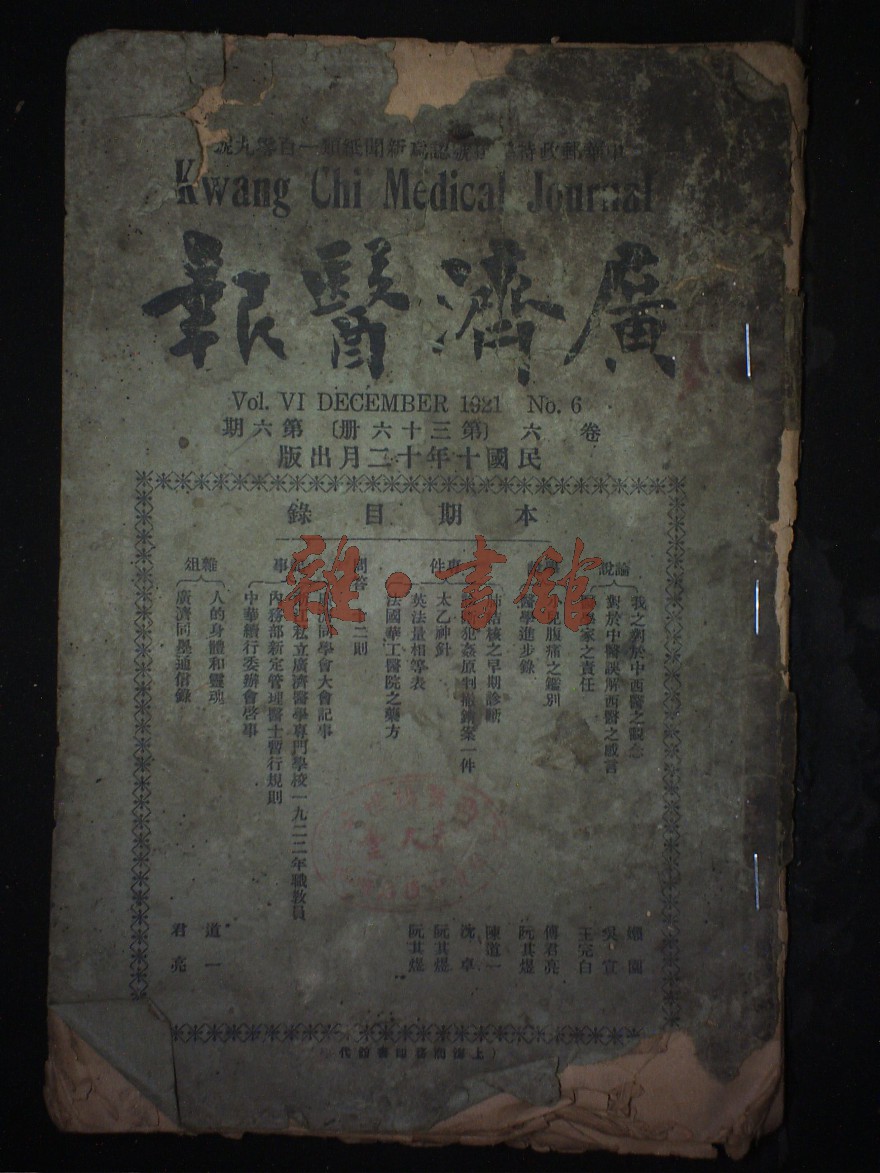 中華郵政特準掛號認爲新聞紙類一百零九號
Kwang Chi Medical Journal
廣濟醫報
Vol. VI DECEMBER 1921 No. 6
卷六〔第三十六册〕第六期
民國十年十二月出版
本期目錄
論說
我之對於中西醫之觀念 嬾園
對於中醫誤解西醫之感言 吳宣
家之責任 王完白
腹痛之鑑別 傅君亮
醫學進步錄 阮其煜
件
結核之早期診斷 陳道一
犯姦原判撤銷案一件 沈卓
太乙神針 阮其煜
英法量相等表 阮其煜
法國華工醫院之藥方
問答
二則
事
同學會大會記事
私立廣濟醫學專門學校一九二二年職教員
內務部新定管理醫士暫行規則
中華續行委辦會啓事
雜組
人的身體和靈魂 道一
廣濟同學通信錄 君亮
雜·書館